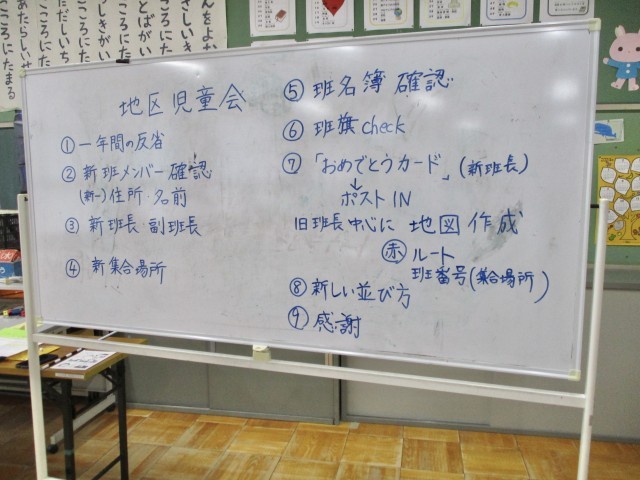 地区児童会
① 一年間の反省
② 新班メンバー確認
(新一)住所・名前
③ 新班長・副班長
④ 新集合場所
⑤ 班名簿 確認
⑥ 班旗 check
⑦ 「おめでとうカード」(新班長)
↓
ポスト IN
旧班長中心に 地図 作成
赤 ルート
班番号(集合場所)
⑧ 新しい並び方
⑨ 感謝